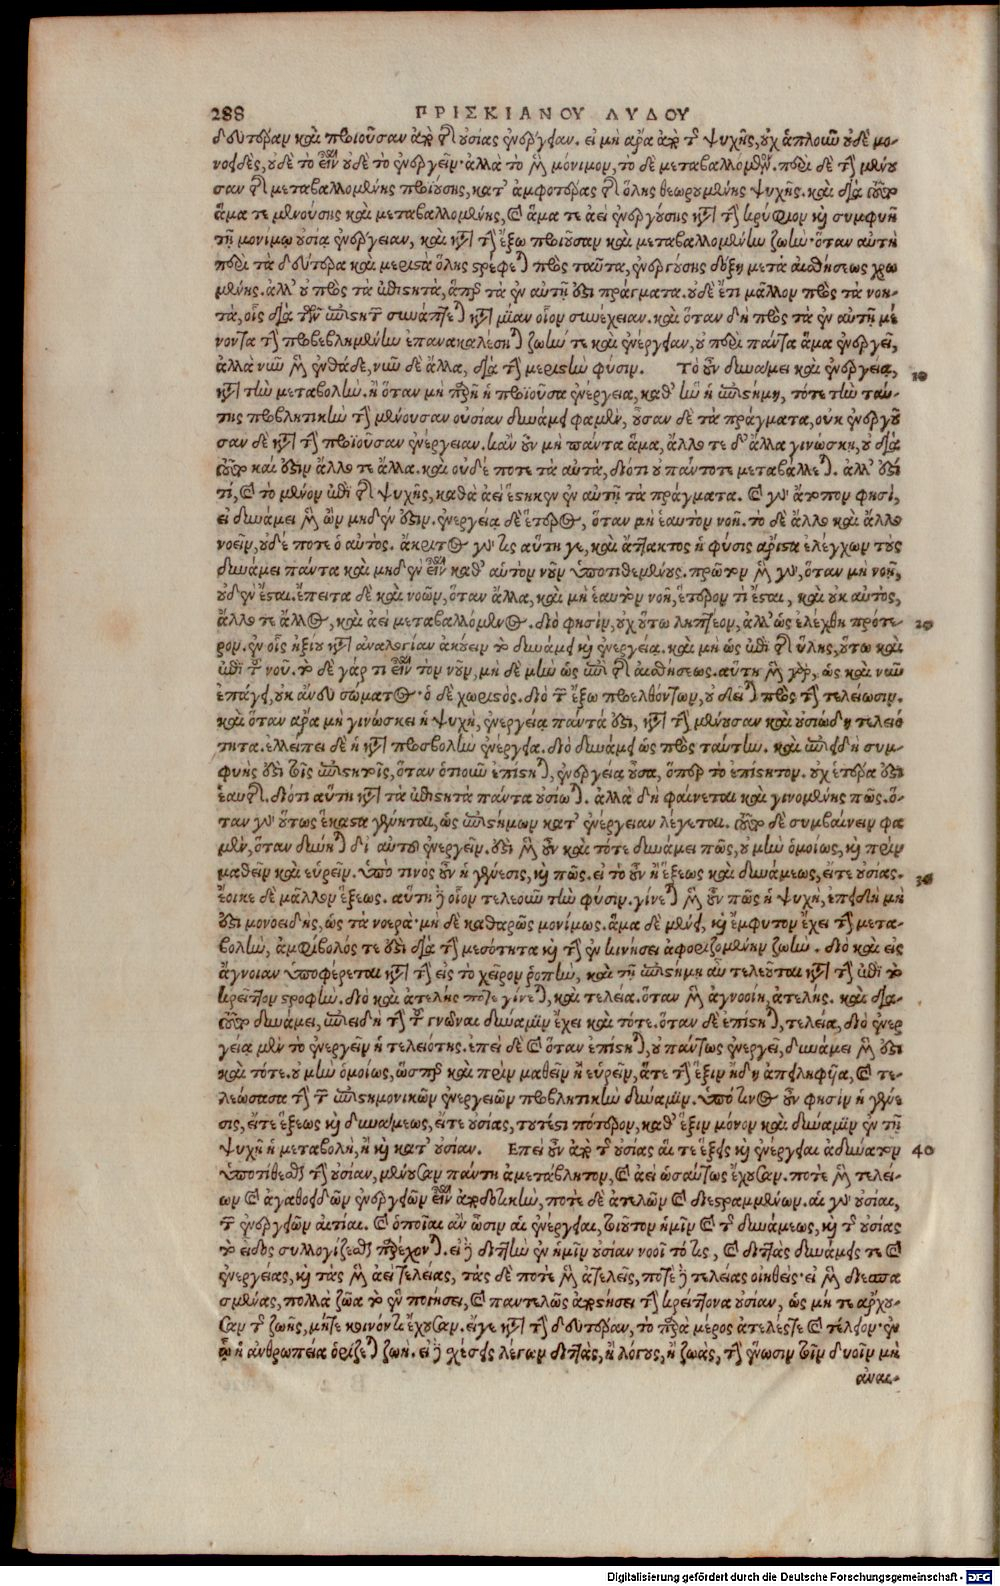 288 ΠΡΙΣΚΙΑΝΟΥ ΛΥΔΟΥ
δευτέραν καὶ προϊοῦσαν ἀπὸ τῆς οὐσίας ἐνέργειαν. εἰ μὴ ἄρα ἀπὸ τῆς ψυχῆς, οὐχ ἁπλοῦν οὐδὲ μο-
νοειδὲς, οὐδὲ τὸ εἶναι οὐδὲ τὸ ἐνεργεῖν· ἀλλὰ τὸ μὲν μόνιμον, τὸ δὲ μεταβαλλόμενον. περὶ δὲ τὴν μένου
σαν τῆς μεταβαλλομένης προϊούσης, κατ' ἀμφοτέρας τῆς ὅλης θεωρουμένης ψυχῆς. καὶ διὰ τοῦτο
ἅμα τε μενούσης καὶ μεταβαλλομένης, καὶ ἅμα τε ἀεὶ ἐνεργούσης κατὰ τὴν κρύφιον καὶ συμφυῆ
τῇ μονίμῳ οὐσίᾳ ἐνέργειαν, καὶ κατὰ τὴν ἔξω προϊοῦσαν καὶ μεταβαλλομένην ζωὴν· ὅταν αὐτὴ
περὶ τὰ δεύτερα καὶ μεριστὰ ὅλης στρέφεται πρὸς ταῦτα, ἐνεργούσης δόξῃ μετὰ αἰσθήσεως χρω
μένης. ἀλλ' οὐ πρὸς τὰ ἐπιστητὰ, ἅπερ τὰ ἐν αὐτῇ ἐστι πράγματα. οὐδὲ ἔτι μᾶλλον πρὸς τὰ νοη-
τὰ, οἷς διὰ τῶν ἐπιστητῶν συνάπτεται κατὰ μίαν οἷον συνέχειαν. καὶ ὅταν δὴ πρὸς τὰ ἐν αὐτῇ μέ
νοντα τὴν προβεβλημένην ἐπανακαλέσηται ζωήν τε καὶ ἐνέργειαν, οὐ περὶ πάντα ἅμα ἐνεργεῖ,
ἀλλὰ νῦν μὲν ἐνθάδε, νῦν δὲ ἄλλα, διὰ τὴν μεριστὴν φύσιν. Τὸ οὖν δυνάμει καὶ ἐνεργείᾳ, 10
κατὰ τὴν μεταβολὴν. ἢ ὅταν μὴ παρῇ ἡ προϊοῦσα ἐνέργεια, καθ' ἣν ἡ ἐπιστήμη, τότε τὴν ταύ-
της προβλητικὴν τὴν μένουσαν οὐσίαν δυνάμει φαμὲν, οὖσαν δὲ τὰ πράγματα, οὐκ ἐνεργοῦ
σαν δὲ κατὰ τὴν προϊοῦσαν ἐνέργειαν. κἂν οὖν μὴ πάντα ἅμα, ἄλλοτε δ' ἄλλα γινώσκῃ, οὐ διὰ
τοῦτο καί ἐστιν ἄλλοτε ἄλλα. καὶ οὐδέ ποτε τὰ αὐτὰ, διότι οὐ πάντοτε μεταβάλλεται. ἀλλ' ἐστί
τι, καὶ τὸ μένον ἐπὶ τῆς ψυχῆς, καθὰ ἀεὶ ἕστηκεν ἐν αὐτῇ τὰ πράγματα. καὶ γὰρ ἄτοπον φησὶ,
εἰ δυνάμει μὲν ὢν μηδέν ἐστιν. ἐνεργείᾳ δὲ ἕτερος, ὅταν μὴ ἑαυτὸν νοῇ. τὸ δὲ ἄλλο καὶ ἄλλο
νοεῖν, οὐδέ ποτε ὁ αὐτὸς. ἄκριτος γάρ τις αὕτη γε, καὶ ἄτακτος ἡ φύσις ἄριστα ἐλέγχων τοὺς
δυνάμει πάντα καὶ μηδὲν εἶναι καθ' αὑτὸν νοῦν ὑποτιθεμένους. πρῶτον μὲν γὰρ, ὅταν μὴ νοῇ,
οὐδὲν ἔσται. ἔπειτα δὲ καὶ νοῶν, ὅταν ἄλλα, καὶ μὴ ἑαυτὸν νοῇ, ἕτερόν τι ἔσται, καὶ οὐκ αὐτὸς,
ἄλλοτε ἄλλος, καὶ ἀεὶ μεταβαλλόμενος. διὸ φησὶν, οὐχ οὕτω ληπτέον, ἀλλ' ὡς ἐλέχθη πρότε- 20
ρον. ἐν οἷς ἠξίου κατὰ ἀναλογίαν ἀκούειν τὸ δυνάμει καὶ ἐνεργείᾳ. καὶ μὴ ὡς ἐπὶ τῆς ὕλης, οὕτω καὶ
ἐπὶ τοῦ νοῦ. τὸ δὲ γάρ τι εἶναι τὸν νοῦν, μὴ δὲ μὴν ὡς ἐπὶ τῆς αἰσθήσεως. αὕτη μὲν γὰρ, ὡς καὶ νῦν
ἐπάγει, οὐκ ἄνευ σώματος· ὁ δὲ χωριστός. διὸ τῶν ἔξω προελθόντων, οὐ δεῖται πρὸς τὴν τελείωσιν.
καὶ ὅταν ἄρα μὴ γινώσκει ἡ ψυχὴ, ἐνεργείᾳ πάντά ἐστι, κατὰ τὴν μένουσαν καὶ οὐσιώδη τελειό
τητα. ἐλλείπει δὲ ἡ κατὰ προσβολὴν ἐνέργεια. διὸ δυνάμει ὡς πρὸς ταύτην. καὶ ἐπειδὴ συμ-
φυής ἐστι τοῖς ἐπιστητοῖς, ὅταν ὁτιοῦν ἐπίστηται, ἐνεργείᾳ οὖσα, ὅπερ τὸ ἐπιστητόν. οὐχ ἑτέρα ἐστὶ
ἑαυτῆς. διότι αὕτη κατὰ τὰ ἐπιστητὰ πάντα οὐσίωται. ἀλλὰ δὴ φαίνεται καὶ γινομένης πῶς. ὅ-
ταν γὰρ οὕτως ἕκαστα γένηται, ὡς ἐπιστήμων κατ' ἐνέργειαν λέγεται. τοῦτο δὲ συμβαίνειν φα
μὲν, ὅταν δύνηται δι' αὑτοῦ ἐνεργεῖν. ἐστι μὲν οὖν καὶ τότε δυνάμει πῶς, οὐ μὴν ὁμοίως, καὶ πρὶν
μαθεῖν καὶ εὑρεῖν. ὑπὸ τινὸς οὖν ἡ γένεσις, καὶ πῶς. εἰ τὸ οὖν ἢ ἕξεως καὶ δυνάμεως, εἴτε οὐσίας. 30
ἔοικε δὲ μᾶλλον ἕξεως. αὕτη γὰρ οἷον τελεοῦν τὴν φύσιν. γίνεται μὲν οὖν πῶς ἡ ψυχὴ, ἐπειδὴ μή
ἐστι μονοειδὴς, ὡς τὰ νοερὰ· μὴ δὲ καθαρῶς μονίμως. ἅμα δὲ μένει, καὶ ἔμφυτον ἔχει τὴν μετα-
βολὴν, ἀμφίβολός τε ἐστι διὰ τὴν μεσότητα καὶ τὴν ἐν κινήσει ἀφοριζομένην ζωὴν. διὸ καὶ εἰς
ἄγνοιαν ὑποφέρεται κατὰ τὴν εἰς τὸ χεῖρον ῥοπὴν, καὶ τῇ ἐπιστήμῃ αὖ τελεῦται κατὰ τὴν ἐπὶ τὸ
κρεῖττον στροφὴν. διὸ καὶ ἀτελής ποτε γίνεται, καὶ τελεία. ὅταν μὲν ἀγνοοίη, ἀτελής. καὶ διὰ-
τοῦτο δυνάμει, ἐπειδὴ τὴν τοῦ γνῶναι δύναμιν ἔχει καὶ τότε. ὅταν δὲ ἐπίστηται, τελεία, διὸ ἐνερ
γείᾳ μὲν τὸ ἐνεργεῖν ἡ τελειότης. ἐπεὶ δὲ καὶ ὅταν ἐπίστηται, οὐ πάντως ἐνεργεῖ, δυνάμει μὲν ἐστι
καὶ τότε. οὐ μὴν ὁμοίως, ὥσπερ καὶ πρὶν μαθεῖν ἢ εὑρεῖν, ἅτε τὴν ἕξιν ἤδη ἀπειληφυῖα, καὶ τε-
λεώσασα τὴν τῶν ἐπιστημονικῶν ἐνεργειῶν προβλητικὴν δύναμιν. ὑπό τινος οὖν φησὶν ἡ γένε
σις, εἴτε ἕξεως καὶ δυνάμεως, εἴτε οὐσίας, τουτέστι πότερον, καθ' ἕξιν μόνον καὶ δύναμιν ἐν τῇ
ψυχῇ ἡ μεταβολὴ, ἢ καὶ κατ' οὐσίαν. Επεὶ οὖν ἀπὸ τῆς οὐσίας αἵ τε ἕξεις καὶ ἐνέργειαι ἀδύνατον 40
ὑποτίθεσθαι τὴν οὐσίαν, μένουσαν πάντη ἀμετάβλητον, καὶ ἀεὶ ὡσαύτως ἔχουσαν. ποτὲ μὲν τελεί-
ων καὶ ἀγαθοειδῶν ἐνεργειῶν εἶναι ἀποδοτικὴν, ποτὲ δὲ ἀτελῶν καὶ διεστραμμένων. αἱ γὰρ οὐσίαι,
τῶν ἐνεργειῶν αἰτίαι. καὶ ὁποῖαι ἂν ὦσιν αἱ ἐνέργειαι, τοιοῦτον ἡμῖν καὶ τῆς δυνάμεως, καὶ τῆς οὐσίας
τὸ εἶδος συλλογίζεσθαι παρέχονται. εἰ γὰρ διττὴν ἐν ἡμῖν οὐσίαν νοοῖ τό τις, καὶ διττὰς δυνάμεις τε καὶ
ἐνεργείας, καὶ τὰς μὲν ἀεὶ τελείας, τὰς δὲ ποτὲ μὲν ἀτελεῖς, ποτὲ γὰρ τελείας οἰηθείς· εἰ μὲν διεσπα
σμένας, πολλὰ ζῶα τὸ ἓν ποιήσει, καὶ παντελῶς ἀποστήσει τὴν κρείττονα οὐσίαν, ὡς μή τε ἄρχου-
σαν τῆς ζωῆς, μήτε κοινόν τι ἔχουσαν. εἴγε κατὰ τὴν δευτέραν, τὸ παρὰ μέρος ἀτελές τε καὶ τέλειον· ἐν
ᾧ ἡ ἀνθρωπεία ὁρίζεται ζωὴ. εἰ γὰρ σχέσεις λέγων διττὰς, ἢ λόγους, ἢ ζωὰς, τὴν γνῶσιν τοῖν δυοῖν μὴ
ἀναι-
Digitalisierung gefördert durch die Deutsche Forschungsgemeinschaft - DFG